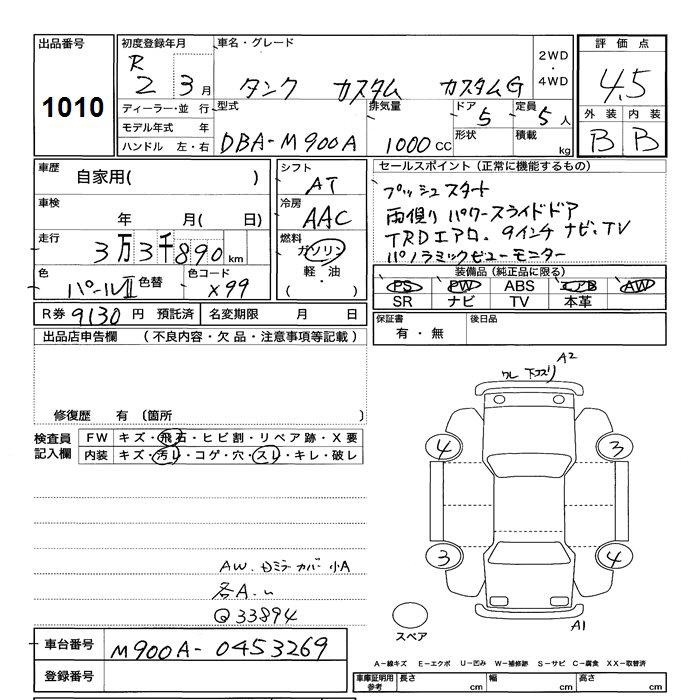 出品番号
1010
初度登録年月
R
2 3 月
車名・グレード
タンク カスタム カスタムG
2WD
・
4WD
評価点
4.5
ディーラー・並 行
モデル年式 年
ハンドル 左・右
型式
DBA-M900A
排気量
1000 CC
ドア
5
形状
定員
5 人
積載
kg
外装 内装
B B
車歴
自家用( )
車検
年 月( 日)
走行
3万3千890 km
色
パールⅡ
色替
色コード
X99
シフト
AT
冷房
AAC
燃料
ガソリン
軽・油
( )
セールスポイント(正常に機能するもの)
プッシュスタート
両側りパワースライドドア
TRDエアロ. 9インチ ナビ.TV
パノラミックビューモニター
装備品(純正品に限る)
PS PW ABS エアB AW
SR ナビ TV 本革
R券 9130 円 預託済
名変期限 月 日
保証書
有・無
後日品
出品店申告欄 (不良内容・欠品・注意事項等記載)
修復歴 有(箇所 )
検査員
記入欄
FW キズ・飛石・ヒビ割・リペア跡・X要
内装 キズ・汚レ・コゲ・穴・スレ・キレ・破レ
A2
ワレ 下コスリ
4 3
3 4
A1
スペア
AW. ミラーカバー 小A
各A.
Q33894
車台番号
M900A-0453269
登録番号
A-線キズ E-エクボ U-凹み W-補修跡 S-サビ C-腐食 XX-取替済
車庫証明用
参考
長さ cm
幅 cm
高さ cm